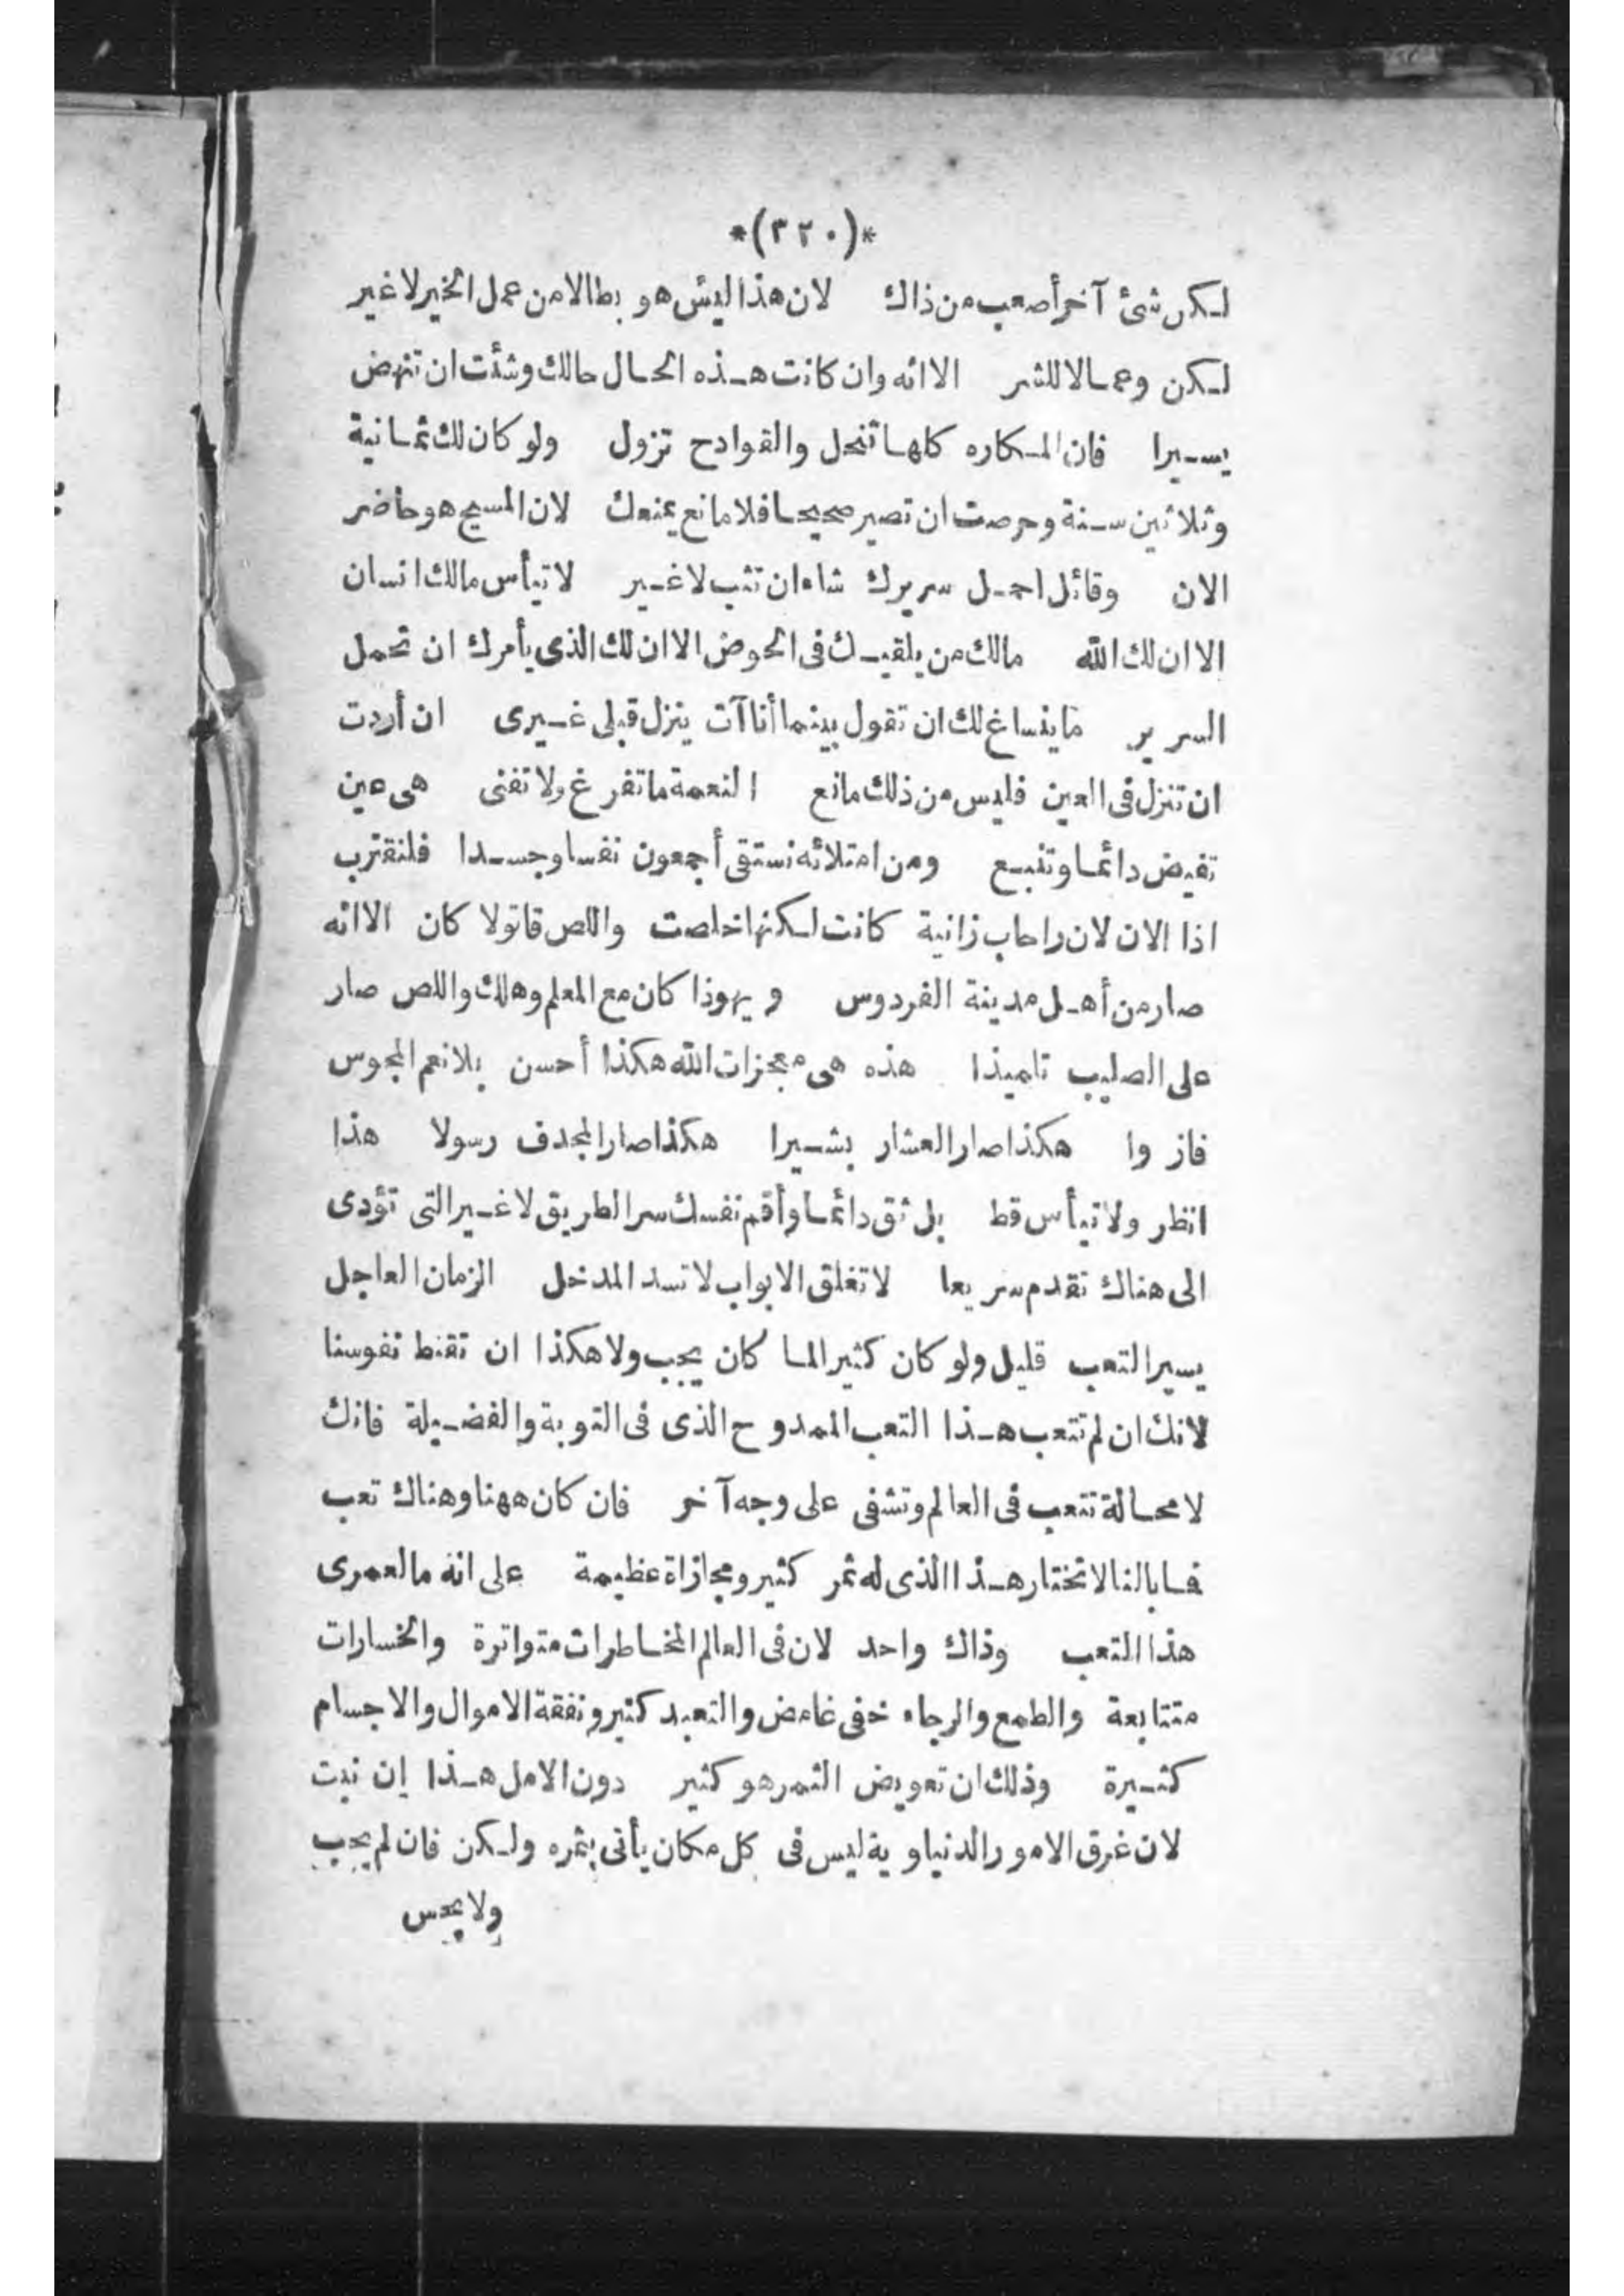 *(٣٢٠)*
لكن شئ آخر أصعب من ذاك لان هذا ليس هو بطالا من عمل الخير لا غير
لكن وعمالا للشر الا انه وان كانت هذه الحال حالك وشئت ان تنهض
يسيرا فان المكاره كلها تنحل والقوادح تزول ولو كان لك ثمانية
وثلاثين سنة وحرصت ان تصير صحيحا فلا مانع يمنعك لان المسيح هو حاضر
الان وقائل احمل سريرك شاء ان تثب لا غير لا تيأس مالك انسان
الا ان لك الله مالك من يلقيك فى الحوض الا ان لك الذى يأمرك ان تحمل
السرير ما ينساغ لك ان تقول بينما أنا آت ينزل قبلى غيرى ان أردت
ان تنزل فى العين فليس من ذلك مانع النعمة ما تفرغ ولا تفنى هى عين
تفيض دائما وتنبع ومن امتلائه نستقى أجمعون نفسا وجسدا فلنقترب
اذا الان لان راحاب زانية كانت لكنها خلصت واللص قاتولا كان الا انه
صار من أهل مدينة الفردوس ويهوذا كان مع المعلم وهلك واللص صار
على الصليب تلميذا هذه هى معجزات الله هكذا أحسن بلانعم المجوس
فازوا هكذا صار العشار بشيرا هكذا صار المجدف رسولا هذا
انظر ولا تيأس قط بل ثق دائما وأقم نفسك سر الطريق لا غير التى تؤدى
الى هناك تقدم سريعا لا تغلق الابواب لا تسد المدخل الزمان العاجل
يسير التعب قليل ولو كان كثير الما كان يجب ولا هكذا ان تقنط نفوسنا
لانك ان لم تتعب هذا التعب الممدوح الذى فى التوبة والفضيلة فانك
لا محالة تتعب فى العالم وتشفى على وجه آخر فان كان ههنا وهناك تعب
فما بالنا لا نختار هذا الذى له ثمر كثير ومجازاة عظيمة على انه ما لعمرى
هذا التعب وذاك واحد لان فى العالم المخاطرات متواترة والخسارات
متتابعة والطمع والرجاء خفى غامض والتعبد كثير ونفقة الاموال والاجسام
كثيرة وذلك ان تعويض الثمر هو كثير دون الامل هذا ان نبت
لان غرق الامور الدنياوية ليس فى كل مكان يأتى بثمره ولكن فان لم يجب
ولا يحس